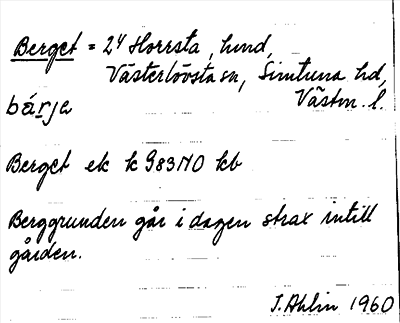 Berget = 2⁴ Horrsta, hmd,
Västerlövsta sn, Simtuna hd,
Västm. l.
bárja
Berget ek k 983 NO kb
Berggrunden går i dagen strax intill
gården.
I. Ahlin 1960